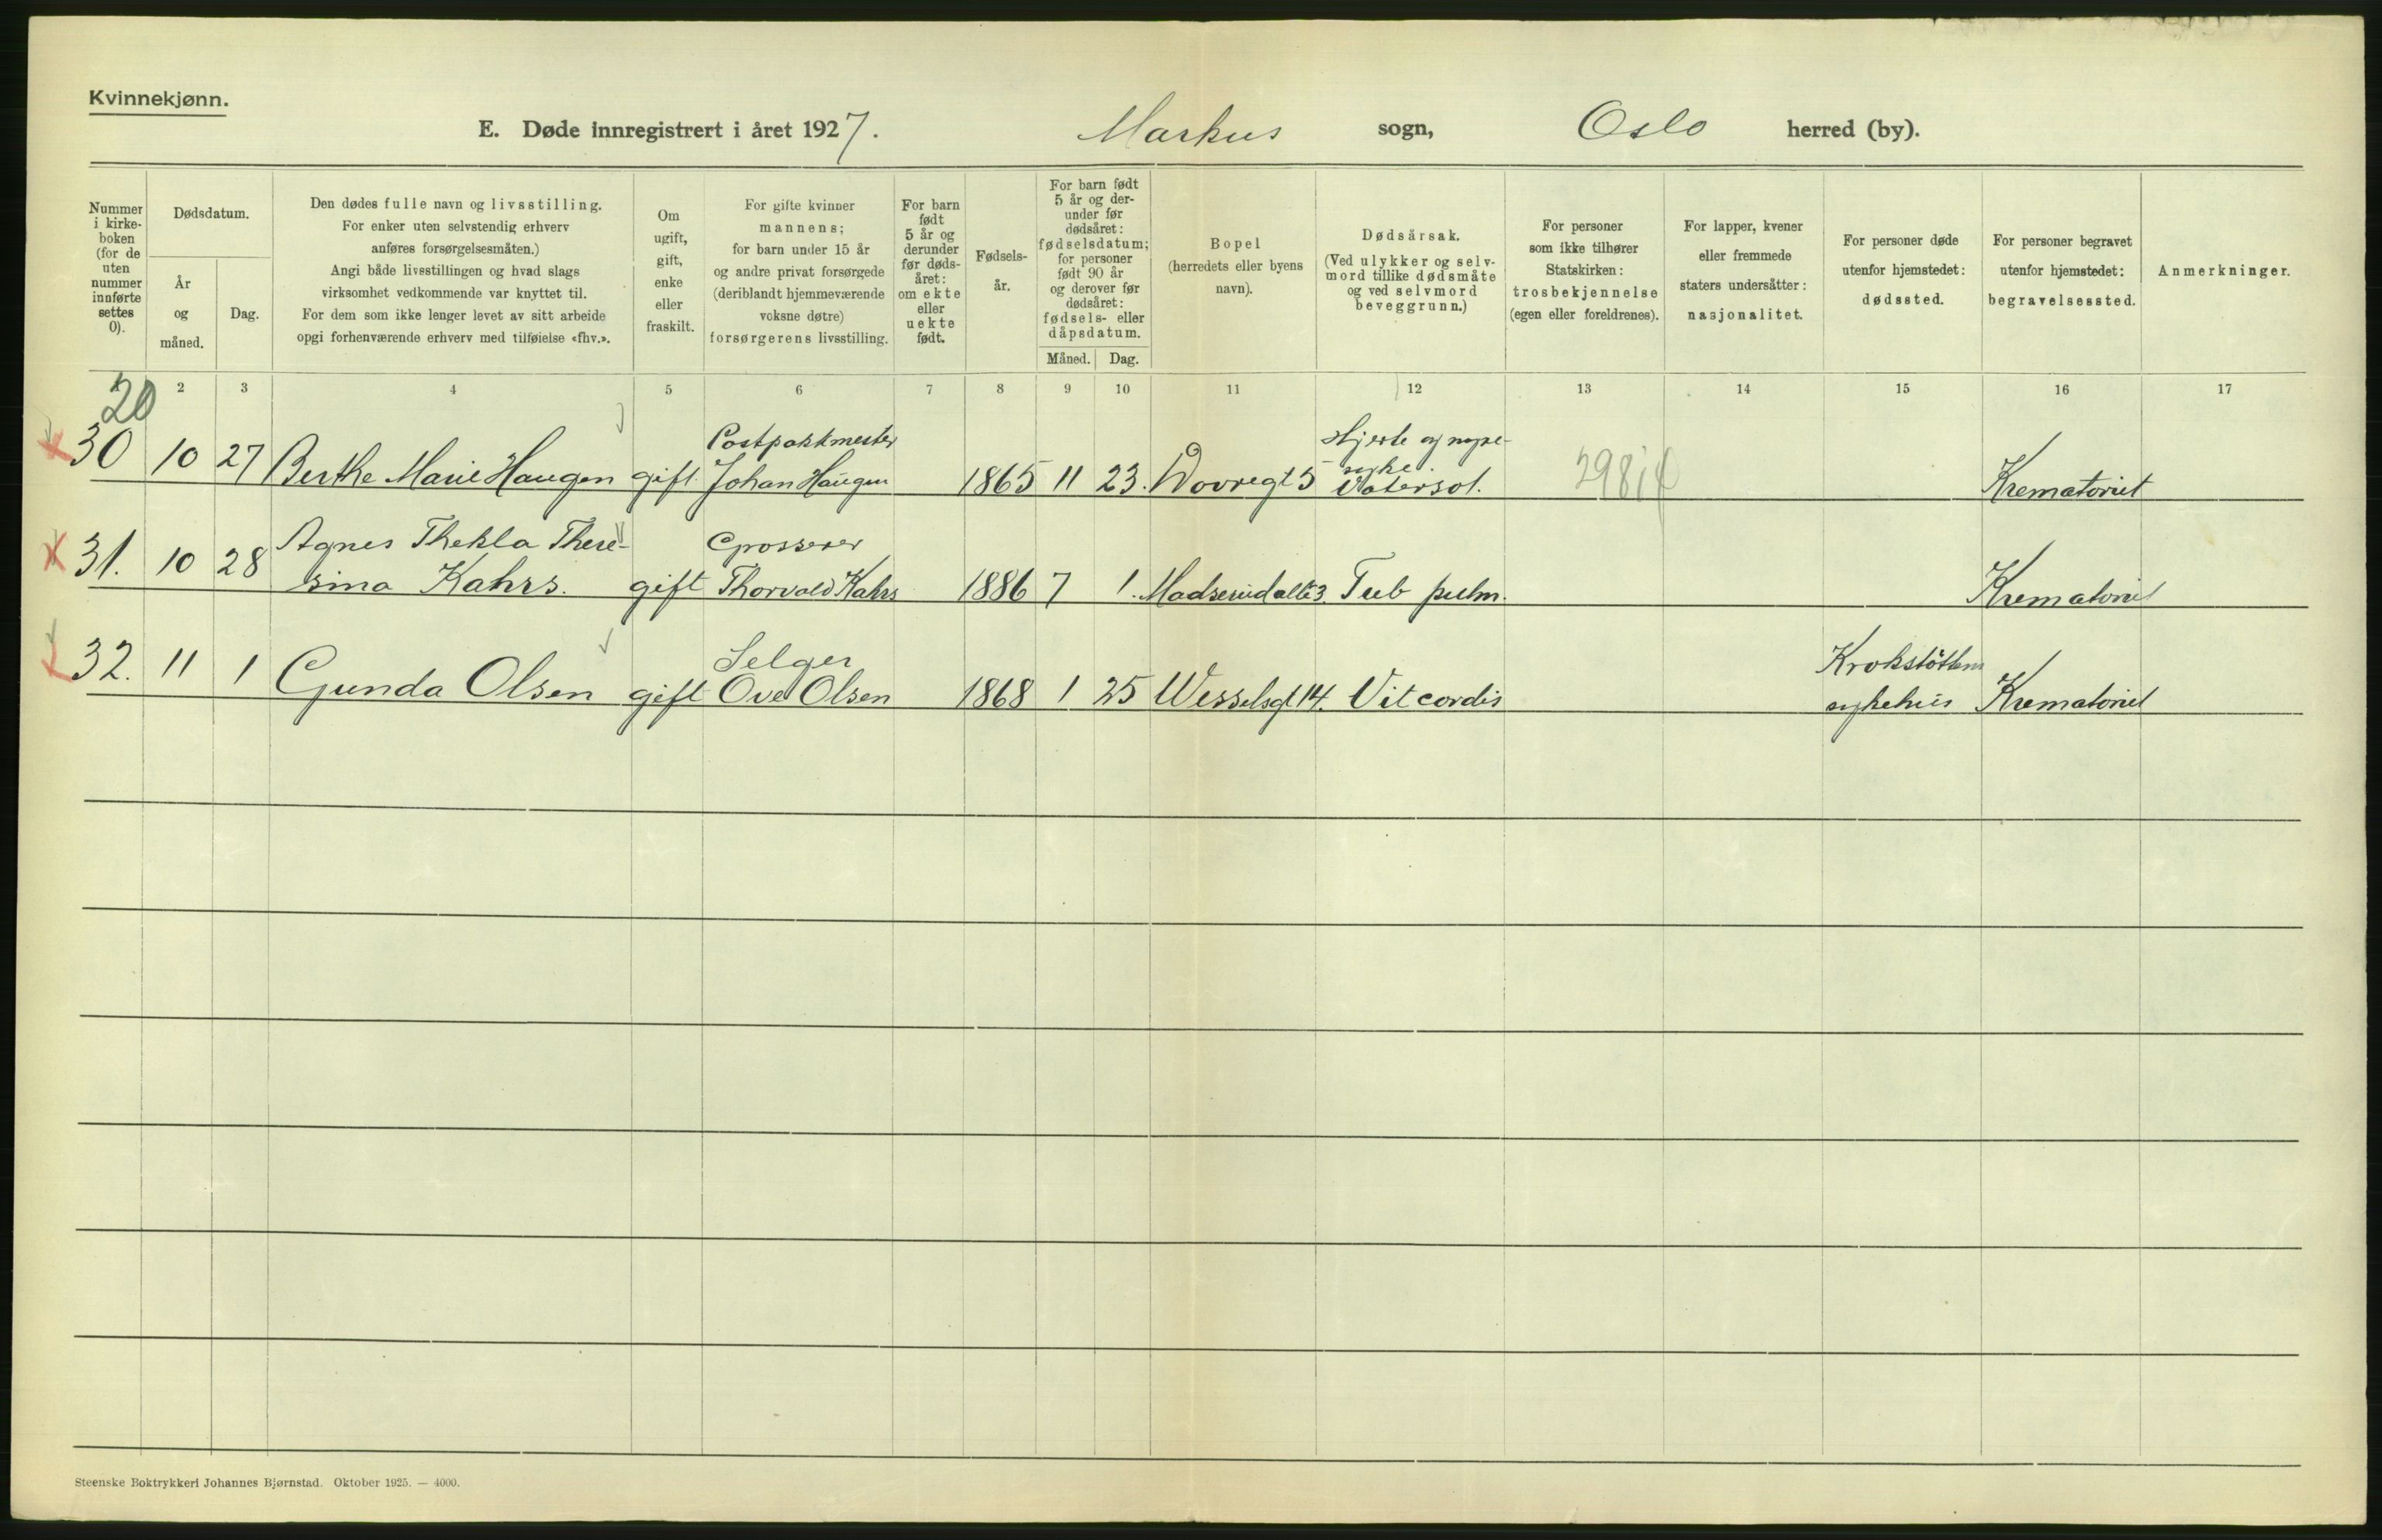 Kvinnekjønn.
E. Døde innregistrert i året 1927. Markus sogn, Oslo herred (by).
Nummer
i kirke-
boken
(for de
uten
nummer
innførte
settes
0).
Dødsdatum.
År
og
måned.
Dag.
Den dødes fulle navn og livsstilling.
For enker uten selvstendig erhverv
anføres forsørgelsesmåten.)
Angi både livsstillingen og hvad slags
virksomhet vedkommende var knyttet til.
For dem som ikke lenger levet av sitt arbeide
opgi forhenværende erhverv med tilføielse «fhv.».
Om
ugift,
gift,
enke
eller
fraskilt.
For gifte kvinner
mannens;
for barn under 15 år
og andre privat forsørgede
(deriblandt hjemmeværende
voksne døtre)
forsørgerens livsstilling.
For barn
født
5 år og
derunder
før døds-
året:
om ekte
eller
uekte
født.
Fødsels-
år.
For barn født
5 år og der-
under før
dødsåret:
fødselsdatum;
for personer
født 90 år
og derover før
dødsåret:
fødsels- eller
dåpsdatum.
Måned. Dag.
Bopel
(herredets eller byens
navn).
Dødsårsak.
(Ved ulykker og selv-
mord tillike dødsmåte
og ved selvmord
beveggrunn.)
For personer
som ikke tilhører
Statskirken:
trosbekjennelse
(egen eller foreldrenes).
For lapper, kvener
eller fremmede
staters undersåtter:
nasjonalitet.
For personer døde
utenfor hjemstedet:
dødssted.
For personer begravet
utenfor hjemstedet:
begravelsessted.
Anmerkninger.
20 2 3 4 5 6 7 8 9 10 11 12 13 14 15 16 17
Postpakkmester Hjerte og nyre-
syke.
30 10 27 Berthe Marie Haugen gift Johan Haugen 1865 11 23. Dovregt 5 Krematoriet
Agnes Thekla There- Grosserer
31. 10 28 sina Kahrs. gift Thorvald Kahrs 1886 7 1. Madserudallé 3. Tub pulm. Krematoriet
Selger
32. 11 1 Gunda Olsen gift Ove Olsen 1868 1 25 Wesselsgt 14. Vit cordis sykehus Krematoriet
Steenske Boktrykkeri Johannes Bjørnstad. Oktober 1925. — 4000.